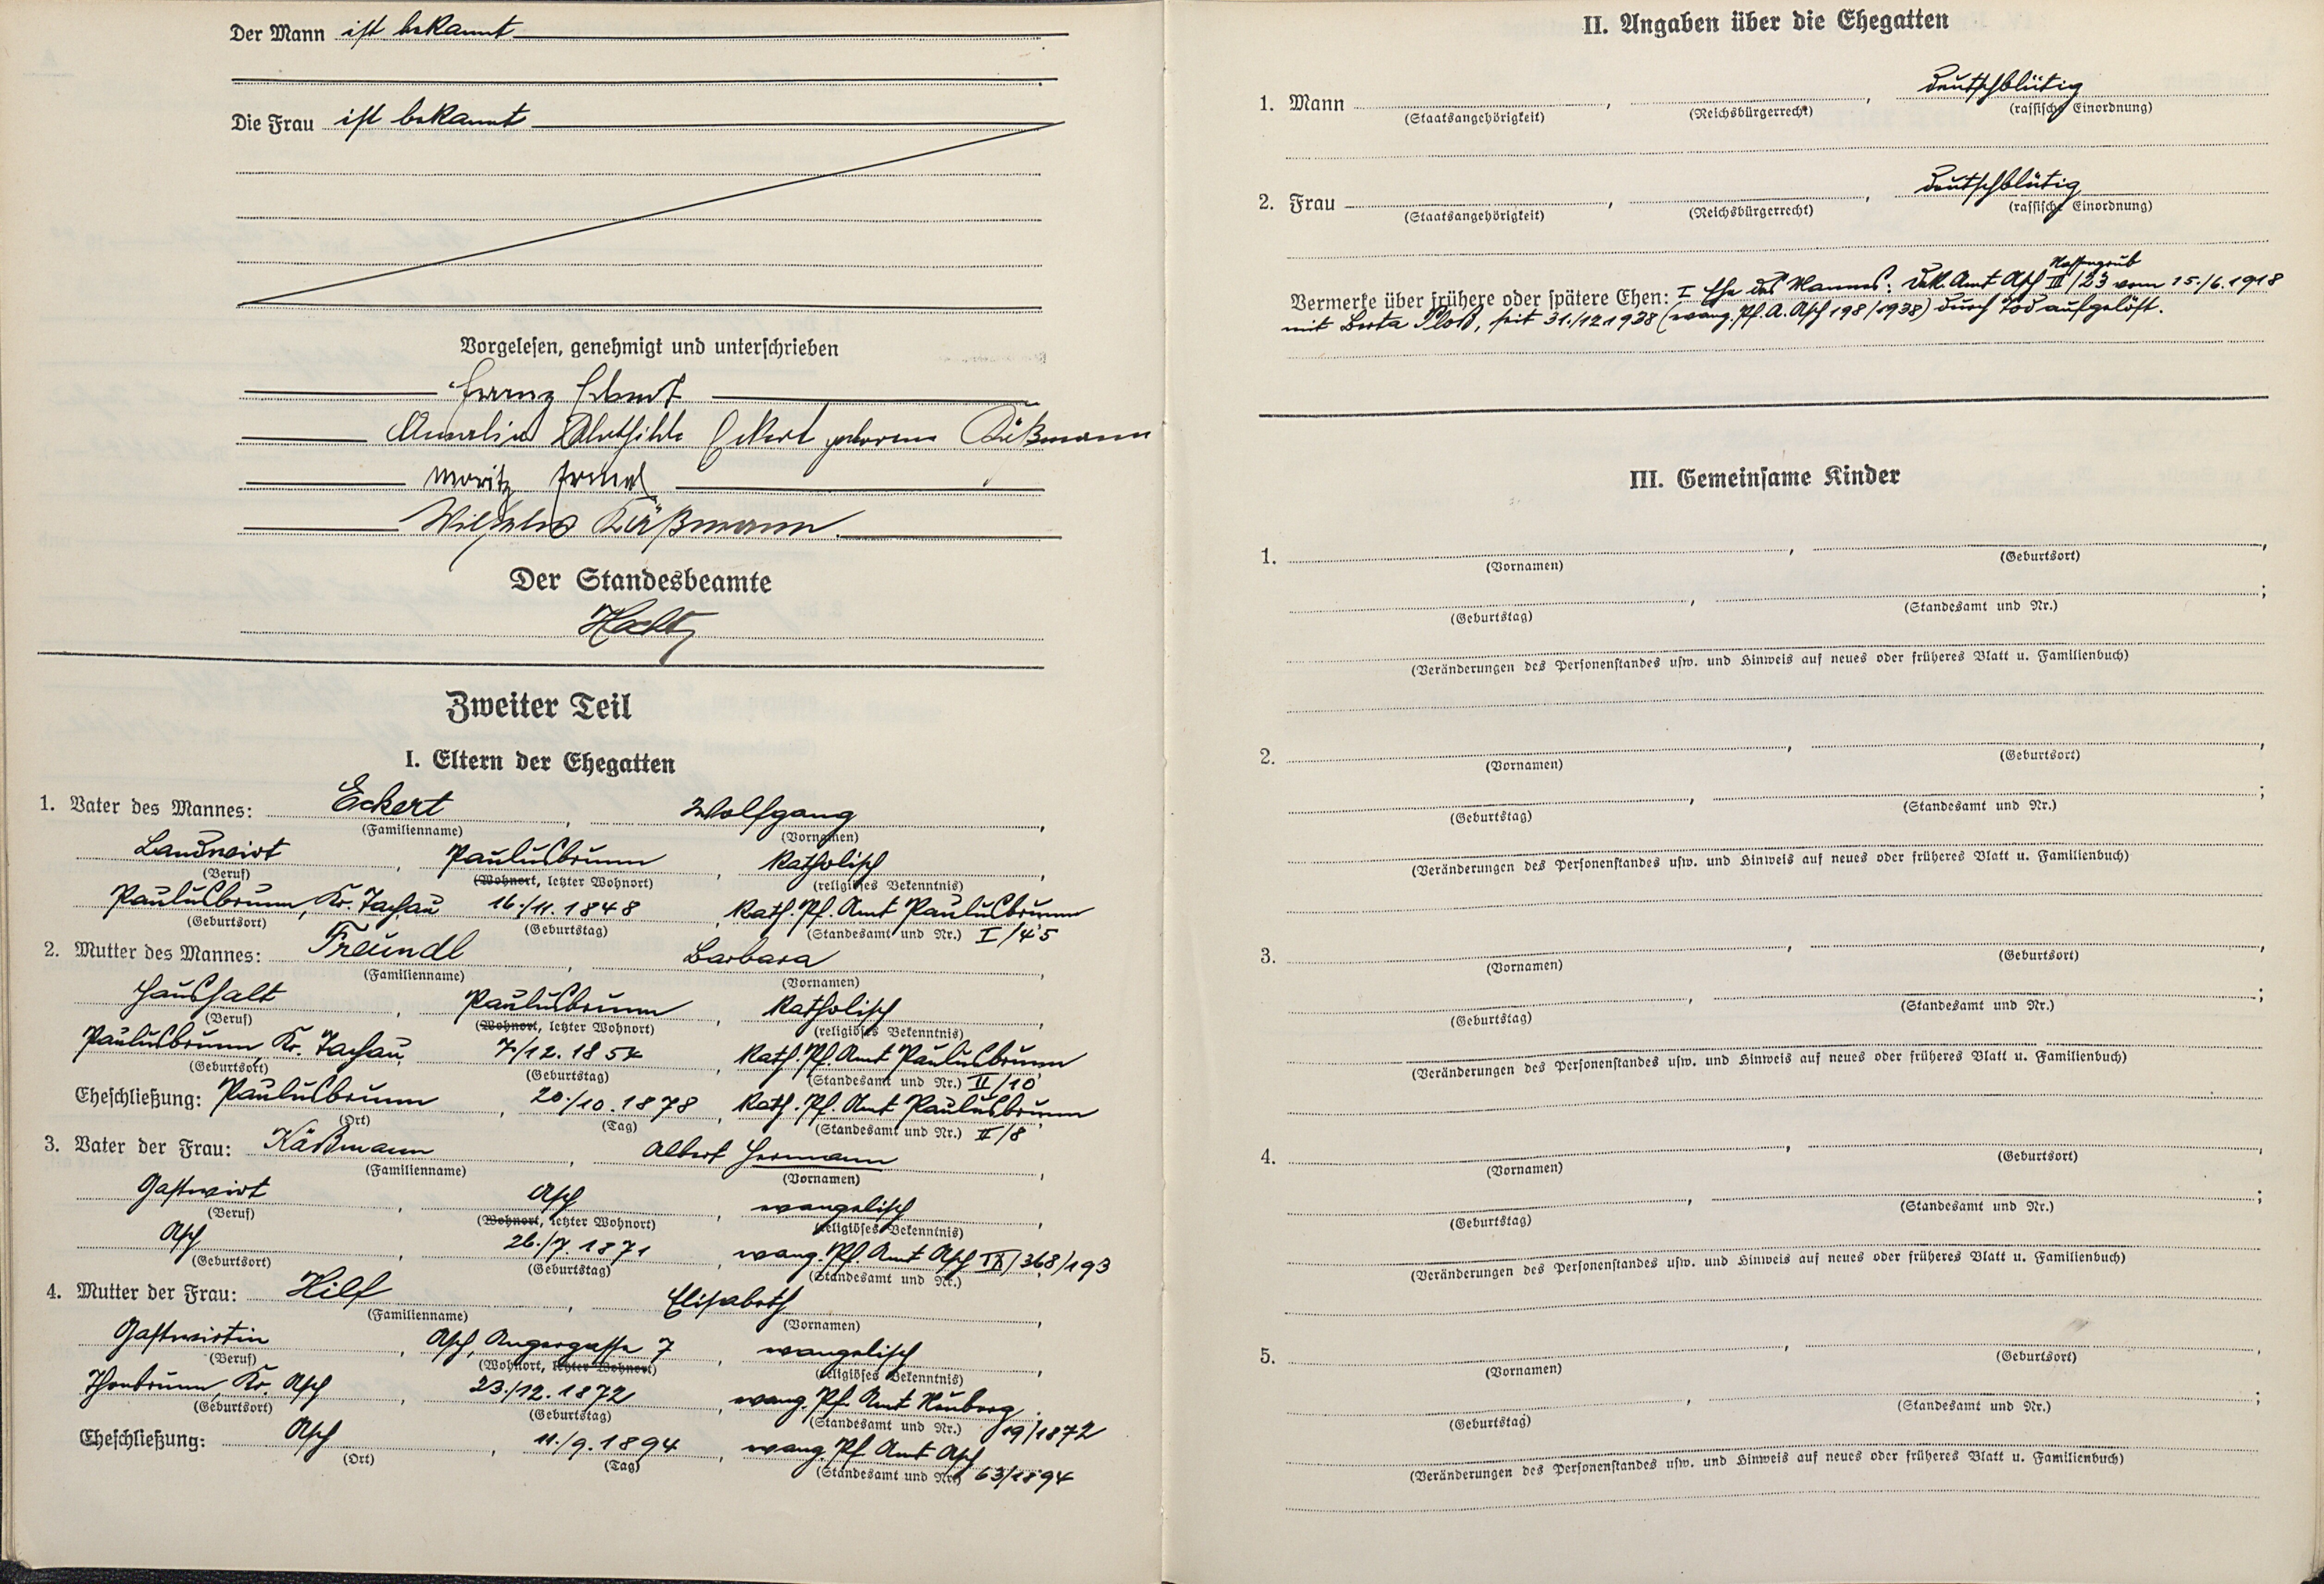 Der Mann ist bekannt
Die Frau ist bekannt
Vorgelesen, genehmigt und unterschrieben
Franz Eckert
Amalia Mathilde Eckert geborene Käßmann
Moritz
Wilhelm Käßmann.
Der Standesbeamte
Zweiter Teil
I. Eltern der Ehegatten
1. Vater des Mannes: Eckert, Wolfgang,
(Familienname) (Vornamen)
Landwirt, Paulusbrunn, katholisch,
(Beruf) (Wohnort, letzter Wohnort) (religiöses Bekenntnis)
Paulusbrunn, Kr. Tachau 16./11. 1848, Kath. Pf. Amt Paulusbrunn
(Geburtsort) (Geburtstag) (Standesamt und Nr.) I/45
2. Mutter des Mannes: Freundl, Barbara,
(Familienname) (Vornamen)
Haushalt, Paulusbrunn, katholisch,
(Beruf) (Wohnort, letzter Wohnort) (religiöses Bekenntnis)
Paulusbrunn, Kr. Tachau, 7/12. 1854, Kath. Pf. Amt Paulusbrunn
(Geburtsort) (Geburtstag) (Standesamt und Nr.) II/10
Eheschließung: Paulusbrunn, 20./10. 1878, Kath. Pf. Amt Paulusbrunn
(Ort) (Tag) (Standesamt und Nr.) II/8
3. Vater der Frau: Käßmann, Albert Hermann,
(Familienname) (Vornamen)
Gastwirt, Asch, evangelisch,
(Beruf) (Wohnort, letzter Wohnort) (religiöses Bekenntnis)
Asch, 26./7. 1871, evang. Pf. Amt Asch IX/368/193
(Geburtsort) (Geburtstag) (Standesamt und Nr.)
4. Mutter der Frau: Hilf, Elisabeth,
(Familienname) (Vornamen)
Gastwirtin, Asch, Angergasse 7, evangelisch,
(Beruf) (Wohnort, letzter Wohnort) (religiöses Bekenntnis)
Thonbrunn, Kr. Asch, 23./12. 1872, evang. Pf. Amt Neuberg
(Geburtsort) (Geburtstag) (Standesamt und Nr.) 19/1872
Eheschließung: Asch, 11./9. 1894, evang. Pf Amt Asch
(Ort) (Tag) (Standesamt und Nr.) 63/1894
II. Angaben über die Ehegatten
1. Mann, , deutschblütig
(Staatsangehörigkeit) (Reichsbürgerrecht) (rassische Einordnung)
2. Frau, , deutschblütig
(Staatsangehörigkeit) (Reichsbürgerrecht) (rassische Einordnung)
Hassengrub
Vermerke über frühere oder spätere Ehen: I Ehe des Mannes: Dek. Amt Asch III/23 vom 15./6. 1918
mit Berta Ploß, seit 31./12 1938 (evang. Pf. A. Asch 198/1938) durch Tod aufgelöst.
III. Gemeinsame Kinder
1. , ,
(Vornamen) (Geburtsort)
, ;
(Geburtstag) (Standesamt und Nr.)
(Veränderungen des Personenstandes usw. und Hinweis auf neues oder früheres Blatt u. Familienbuch)
2. , ,
(Vornamen) (Geburtsort)
, ;
(Geburtstag) (Standesamt und Nr.)
(Veränderungen des Personenstandes usw. und Hinweis auf neues oder früheres Blatt u. Familienbuch)
3. , ,
(Vornamen) (Geburtsort)
, ;
(Geburtstag) (Standesamt und Nr.)
(Veränderungen des Personenstandes usw. und Hinweis auf neues oder früheres Blatt u. Familienbuch)
4. , ,
(Vornamen) (Geburtsort)
, ;
(Geburtstag) (Standesamt und Nr.)
(Veränderungen des Personenstandes usw. und Hinweis auf neues oder früheres Blatt u. Familienbuch)
5. , ,
(Vornamen) (Geburtsort)
, ;
(Geburtstag) (Standesamt und Nr.)
(Veränderungen des Personenstandes usw. und Hinweis auf neues oder früheres Blatt u. Familienbuch)